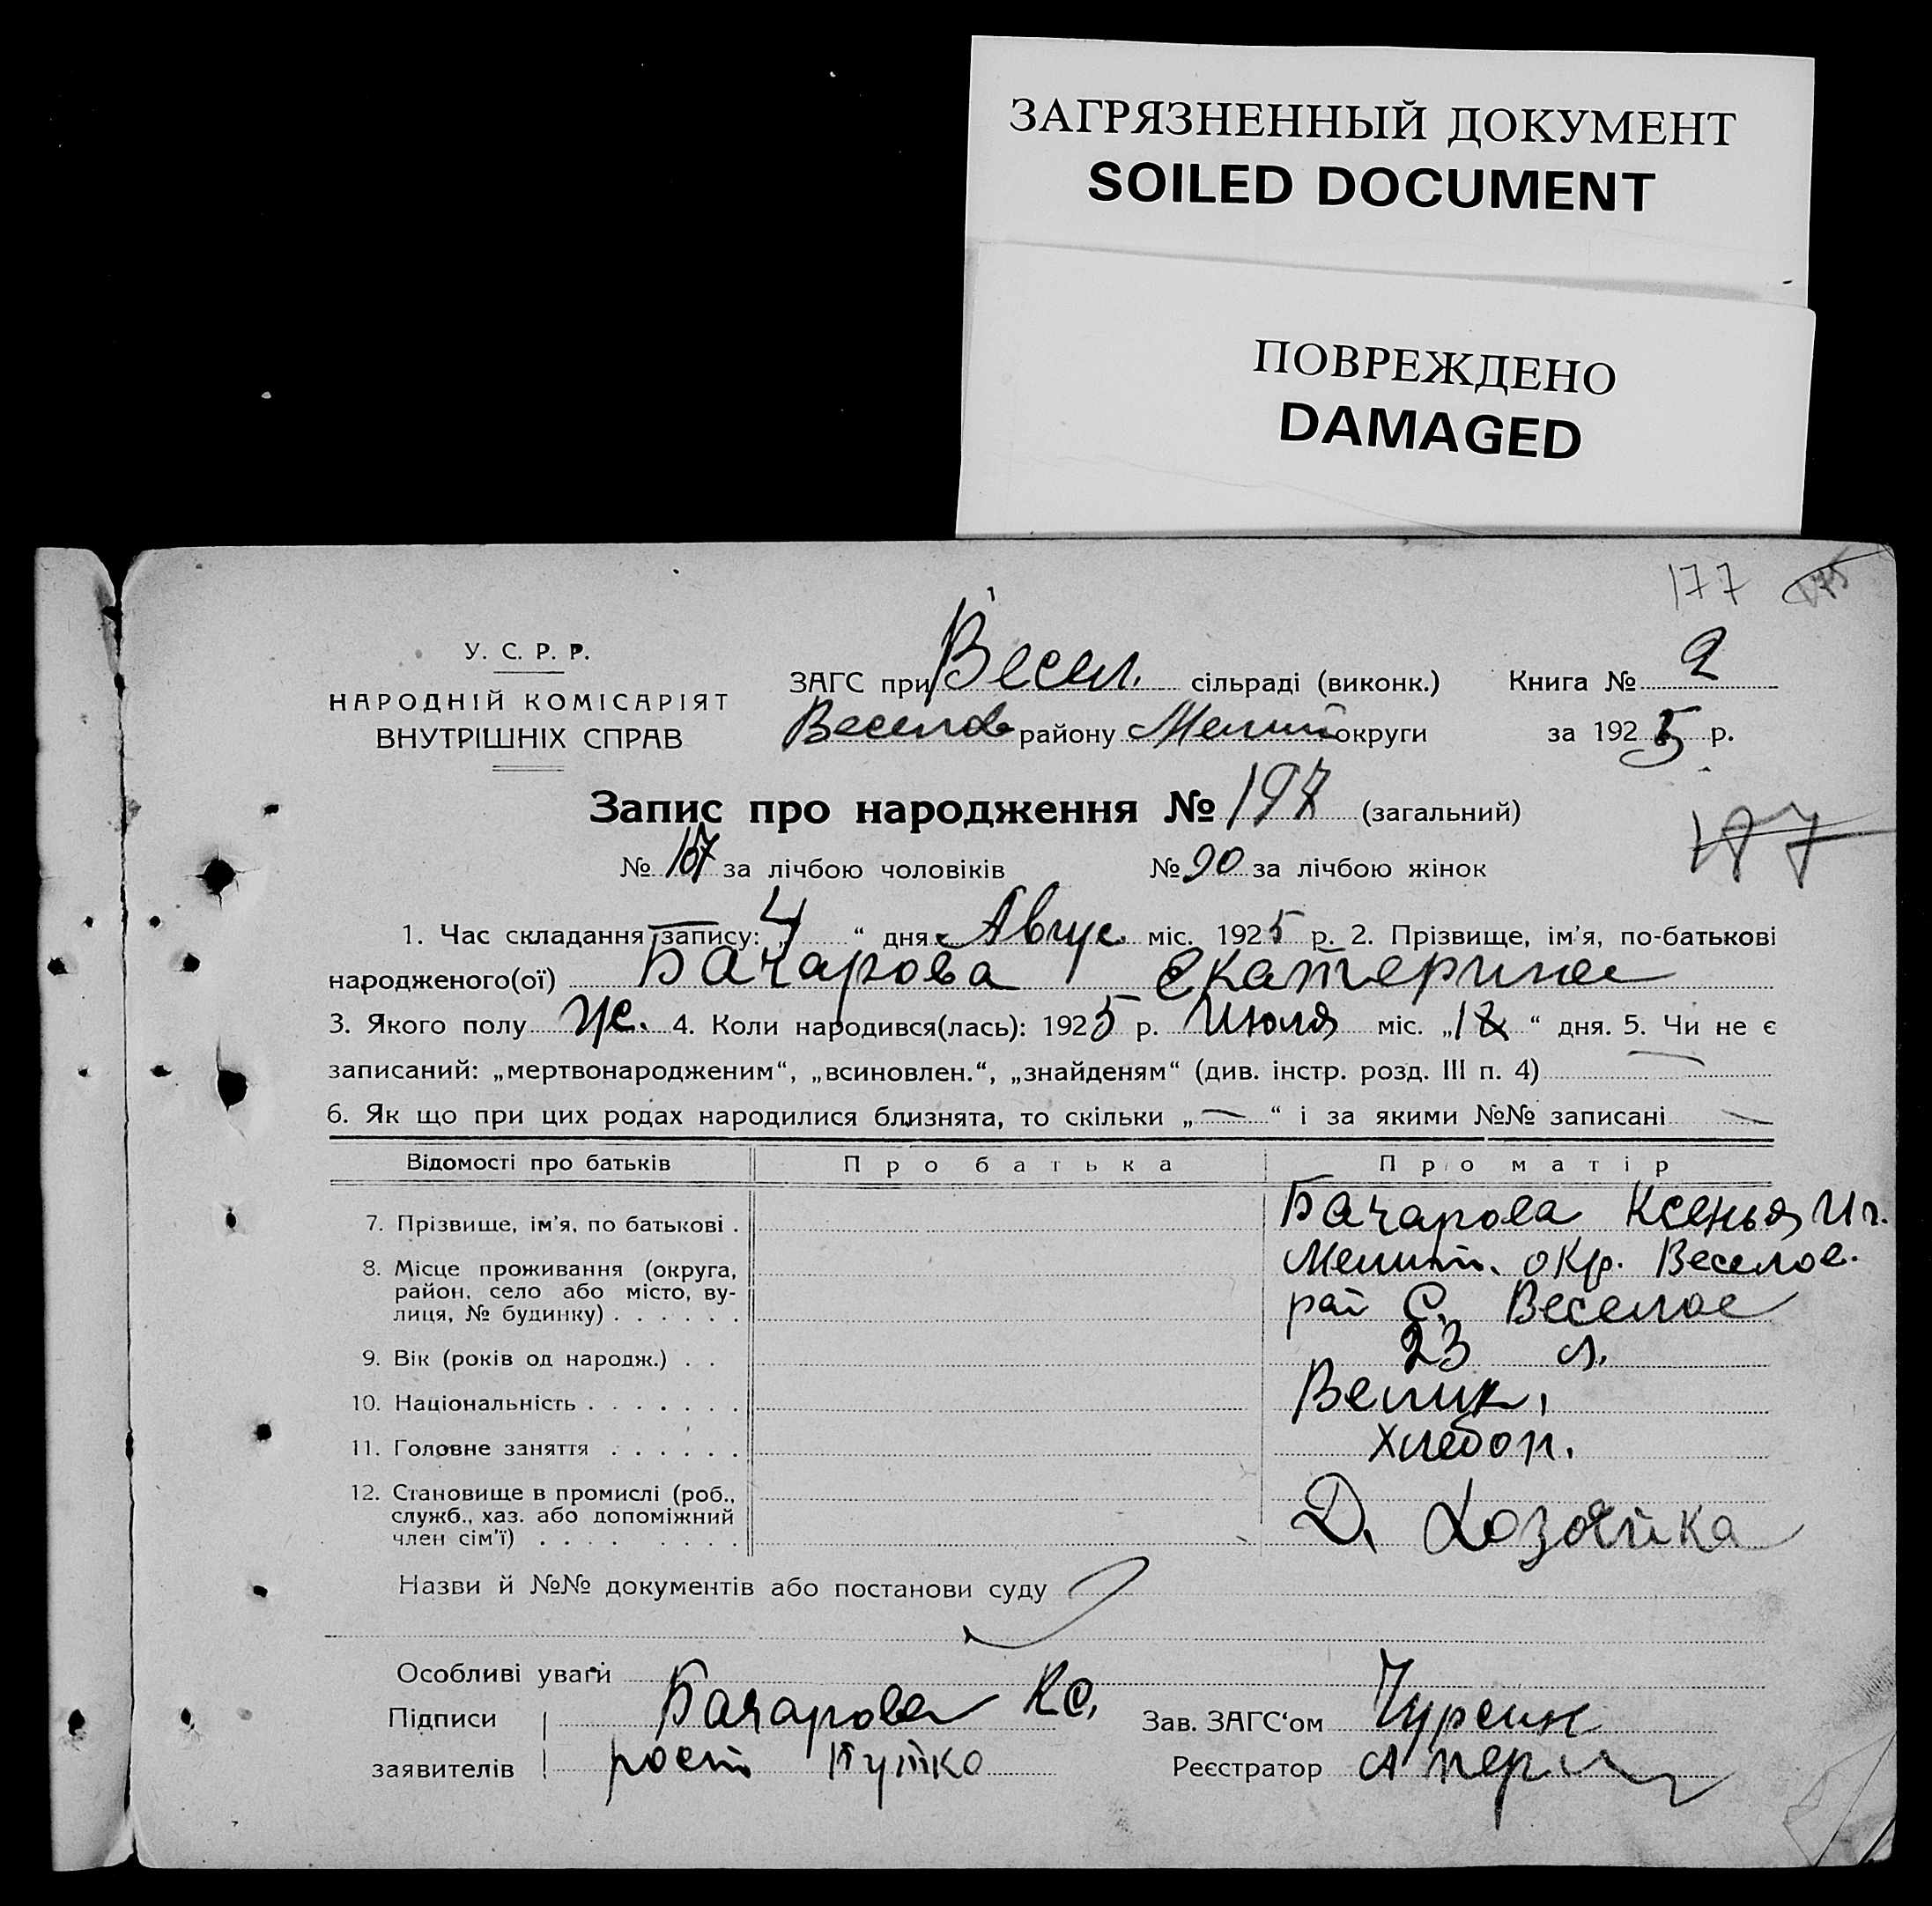 ЗАГРЯЗНЕННЫЙ ДОКУМЕНТ
SOILED DOCUMENT
ПОВРЕЖДЕНО
DAMAGED
177
У. С. Р. Р.
НАРОДНІЙ КОМІСАРІЯТ
ВНУТРІШНІХ СПРАВ
ЗАГС при Весел. сільраді (виконк.) Книга № 2
Веселов району Мелит округи за 1925 р.
Запис про народження № 197 (загальний)
177
№ 107 за лічбою чоловіків № 90 за лічбою жінок
1. Час складання запису: „4“ дня Авгус. міс. 1925 р. 2. Прізвище, ім’я, по-батькові
народженого(ої) Бачарова Екатерина
3. Якого полу ж. 4. Коли народився(лась): 1925 р. Июля міс. „12“ дня. 5. Чи не є
записаний: „мертвонародженим“, „всиновлен.“, „знайденям“ (див. інстр. розд. III п. 4) —
6. Як що при цих родах народилися близнята, то скільки „—“ і за якими №№ записані —
Відомості про батьків Про батька Про матір
7. Прізвище, ім’я, по батькові . Бачарова Ксенья Иг.
8. Місце проживання (округа, Мелит. окр. Веселов.
район, село або місто, ву-
лиця, № будинку) . . . . . . рай С. Веселое
9. Вік (років од народж.) . . 23 л.
10. Національність . . . . . . . Велик.
11. Головне заняття . . . . . . Хлебоп.
12. Становище в промислі (роб.,
служб., хаз. або допоміжний
член сім’ї) . . . . . . . . Д. Хозяйка
Назви й №№ документів або постанови суду
Особливі уваги
Підписи Бачарова Кс. Зав. ЗАГС‘ом Чурсин
заявителів Реєстратор